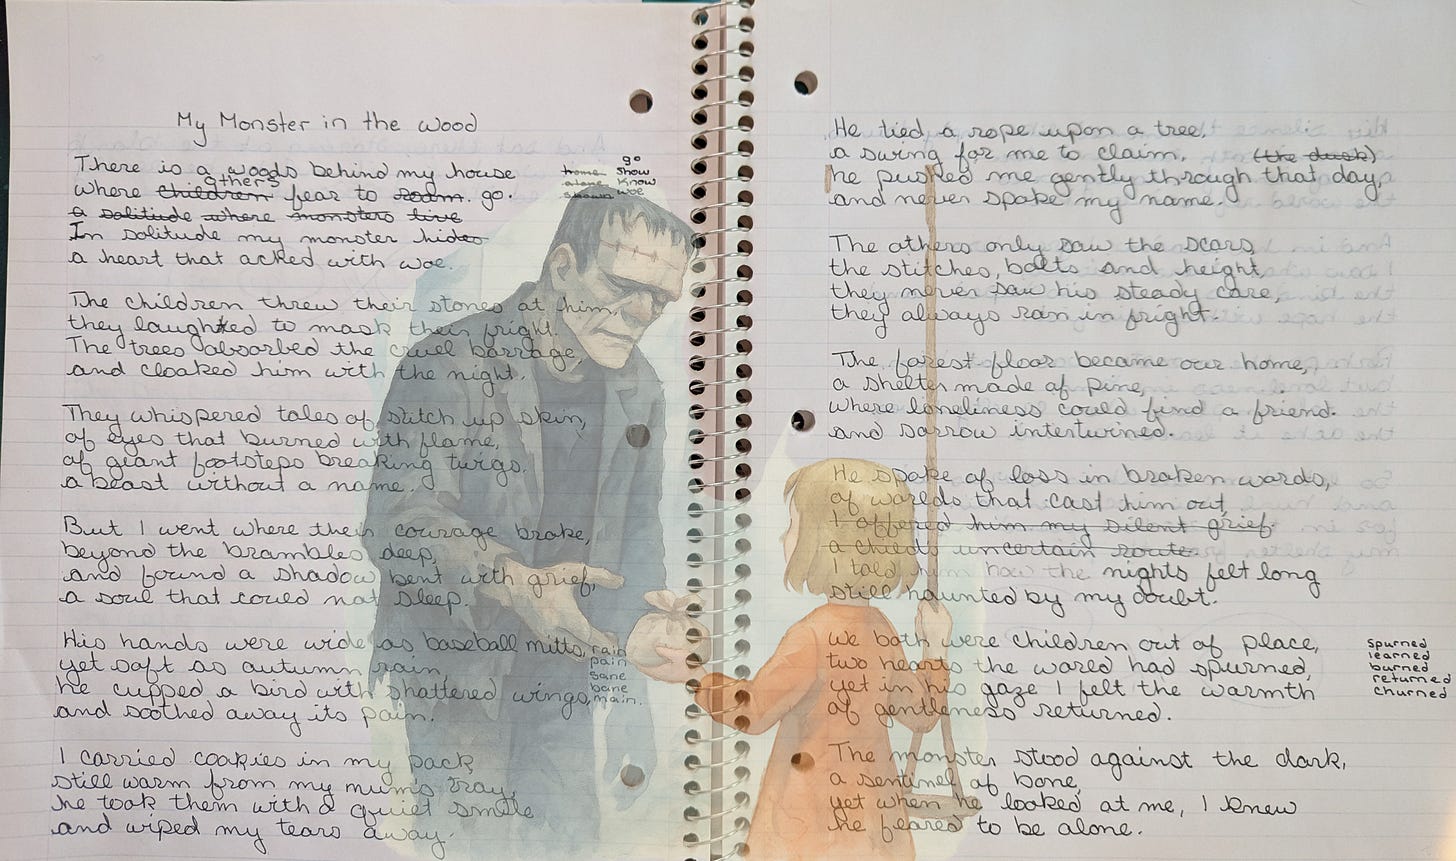 My Monster in the wood
There is a woods behind my house
go
home show
others
where children fear to roam. go.
alone know
shown woe
a solitude where monsters live
In solitude my monster hides
a heart that ached with woe.
The children threw their stones at him,
they laughed to mask their fright.
The trees absorbed the cruel barrage,
and cloaked him with the night.
They whispered tales of stitch up skin,
of eyes that burned with flame,
of giant footsteps breaking twigs.
a beast without a name.
But I went where their courage broke,
beyond the brambles deep,
and found a shadow bent with grief,
a soul that could not sleep.
His hands were wide as baseball mitts,
yet soft as autumn rain,
he cupped a bird with shattered wings,
and soothed away its pain.
rain
pain
sane
bane
main.
I carried cookies in my pack
still warm from my mum's tray,
he took them with a quiet smile
and wiped my tears away.
He tied a rope upon a tree,
a swing for me to claim. (the dusk)
he pushed me gently through that day,
and never spoke my name.
The others only saw the scars,
the stitches, bolts and height,
they never saw his steady care,
they always ran in fright.
The forest floor became our home,
a shelter made of pine,
where loneliness could find a friend.
and sorrow intertwined.
He spoke of loss in broken words,
of worlds that cast him out,
I offered him my silent grief
a child's uncertain route.
I told him how the nights felt long
still haunted by my doubt.
we both were children out of place,
two hearts the world had spurned,
yet in his gaze I felt the warmth
of gentleness returned.
spurned
learned
burned
returned
churned
The monster stood against the dark,
a sentinel of bone,
yet when he looked at me, I knew
he feared to be alone.